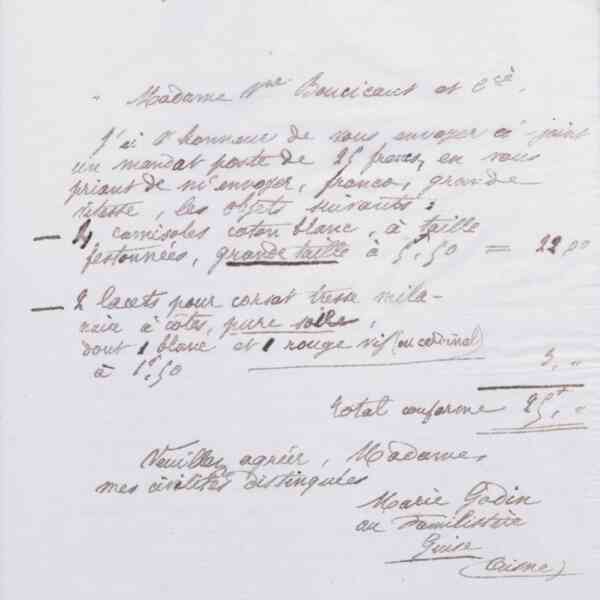 Madame Vve Boucicaut et Cie,
J'ai l'honneur de vous envoyer ci-joint
un mandat poste de 25 francs, en vous
priant de m'envoyer, franco, grande
vitesse, les objets suivants :
— 4 camisoles coton blanc, à taille
festonnées, grande taille à 5f,50 = 22,00
— 2 lacets pour corset tresse mila-
naise à côtes, pure soie,
dont 1 blanc et 1 rouge vif (ou cardinal)
à 1f,50 3, "
Total conforme 25f, "
Veuillez agréer, Madame,
mes civilités distinguées
Marie Godin
au Familistère
Guise
(Aisne)